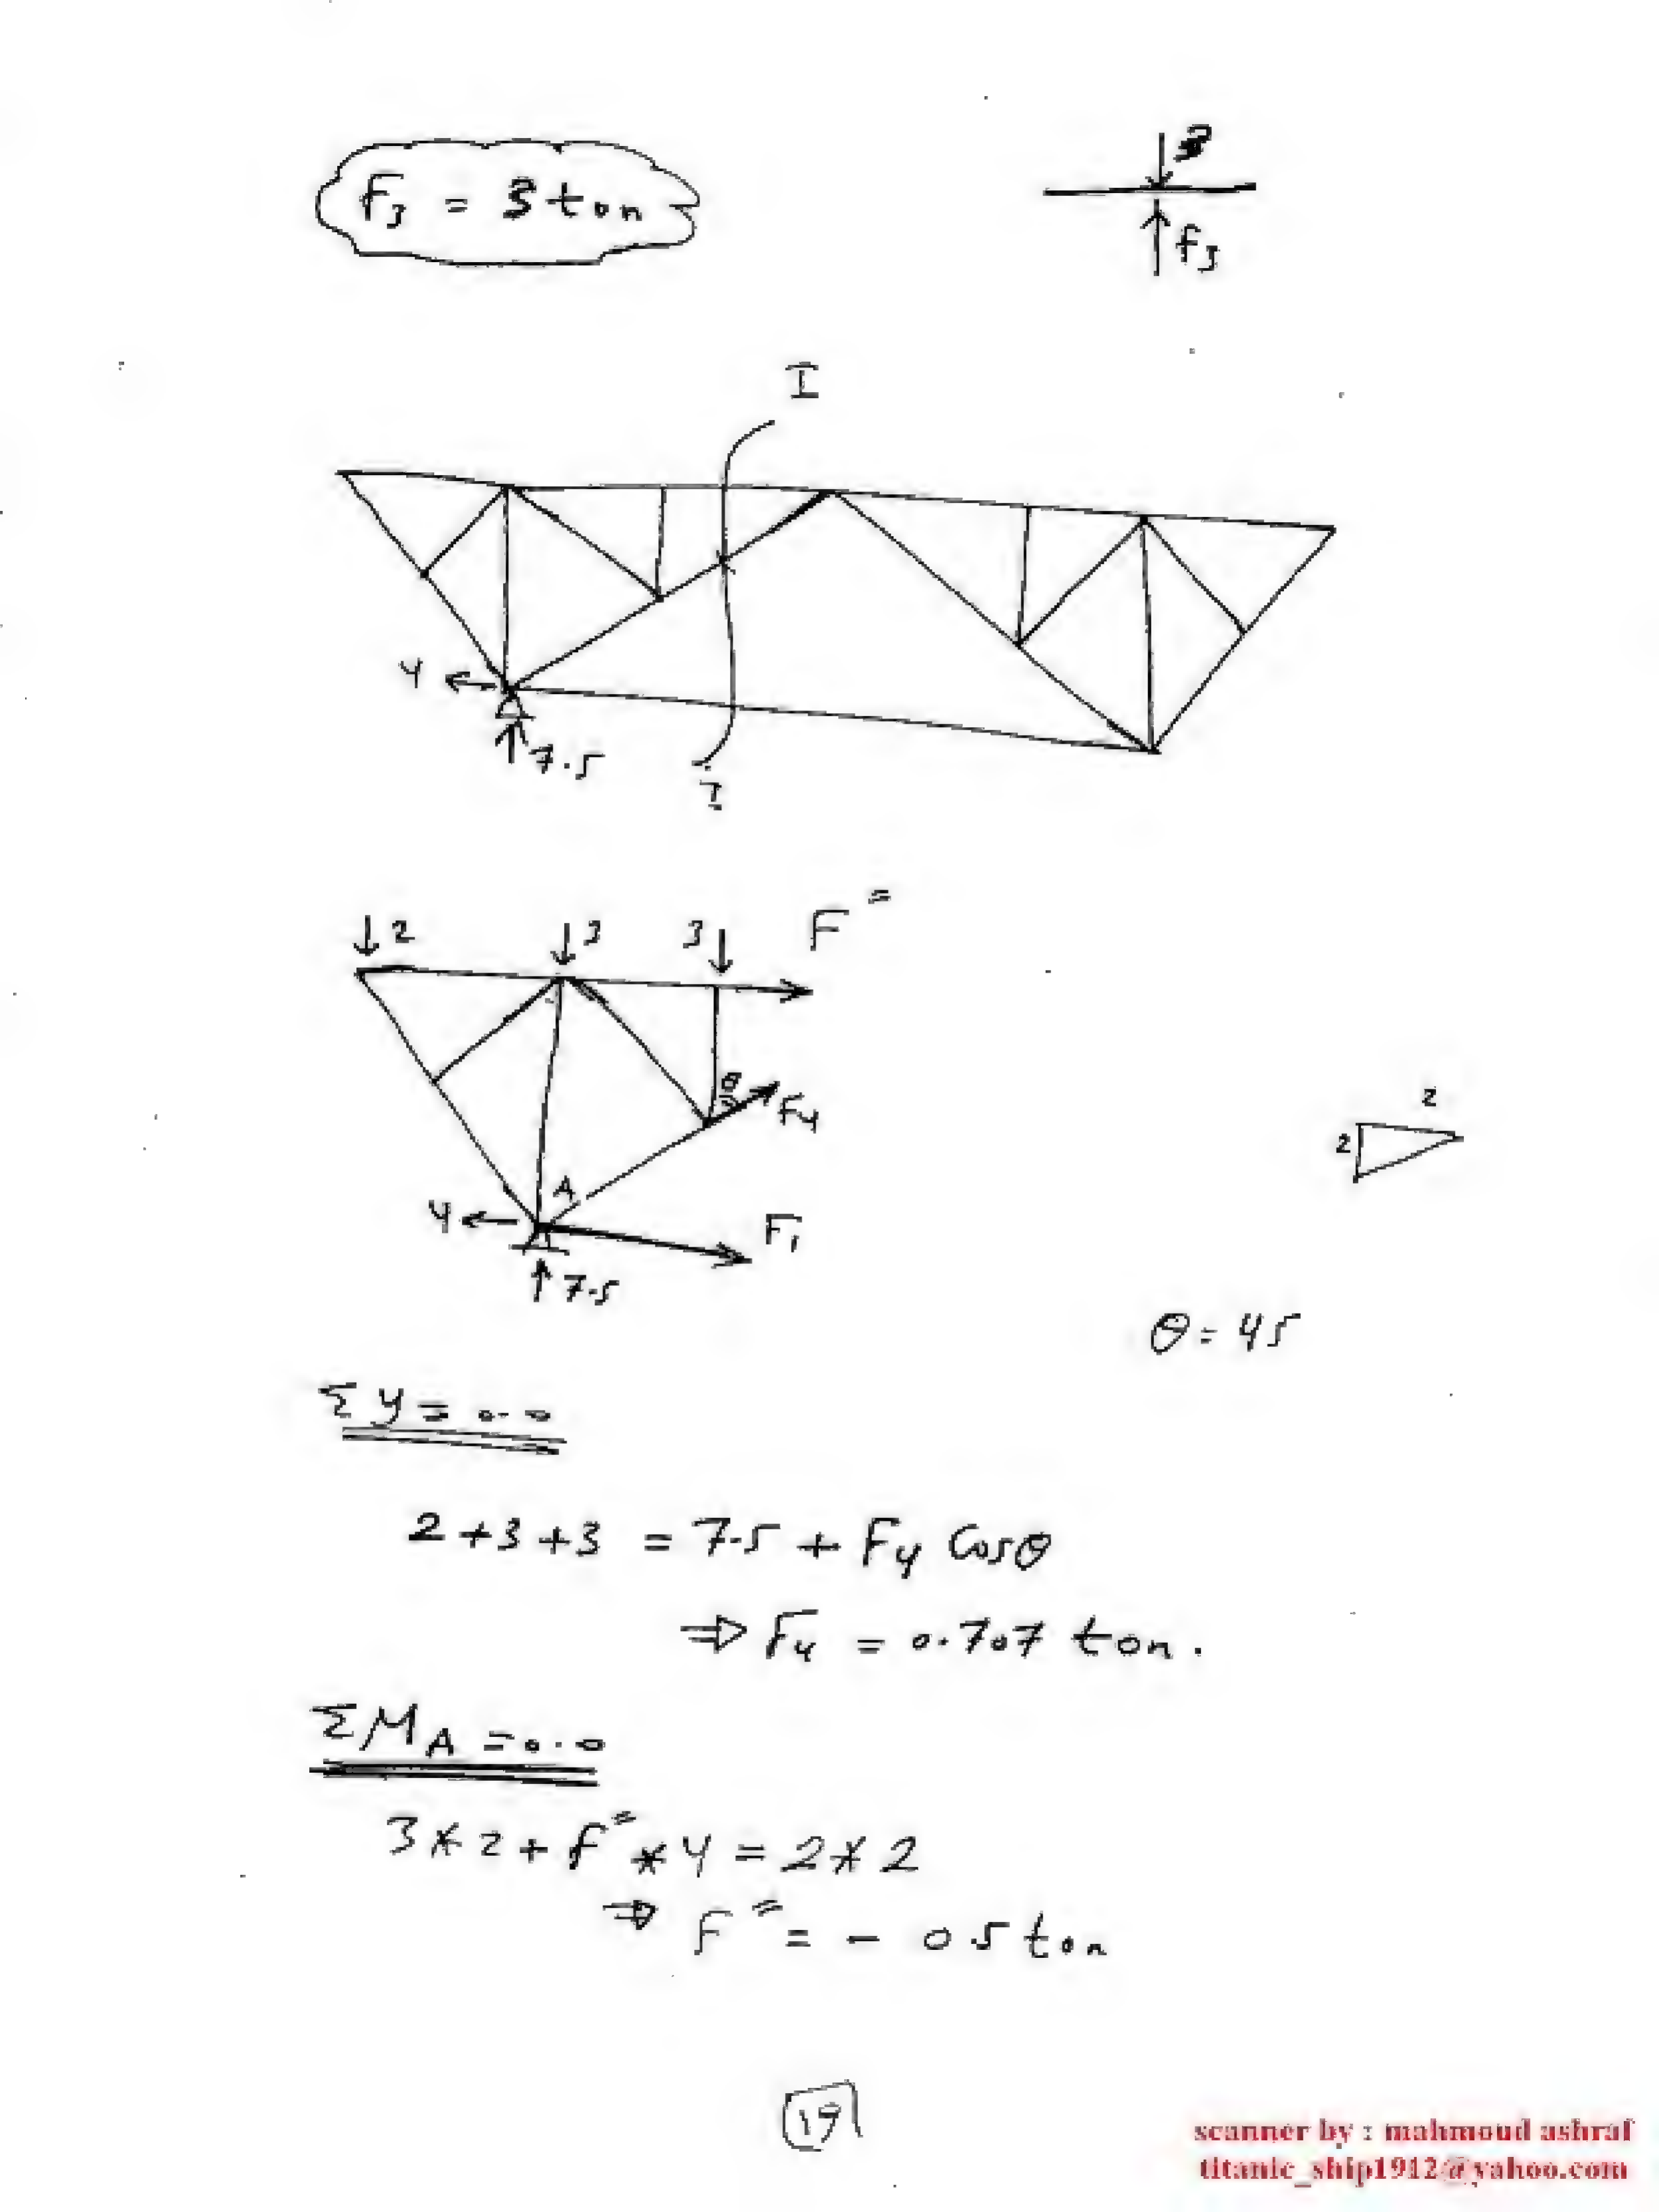 F₃ = 3 ton
3
f₃
I
4
7.5
I
2
3
3
F⁼
θ
F₄
A
4
F₁
7.5
2
2
θ = 45
Σy = 0.0
2 + 3 + 3 = 7.5 + F₄ Cosθ
⇒ F₄ = 0.707 ton.
ΣM_A = 0.0
3 * 2 + F⁼ * 4 = 2 * 2
⇒ F⁼ = - 0 5 ton
scanner by : mahmoud ashraf
titanic_ship1912@yahoo.com